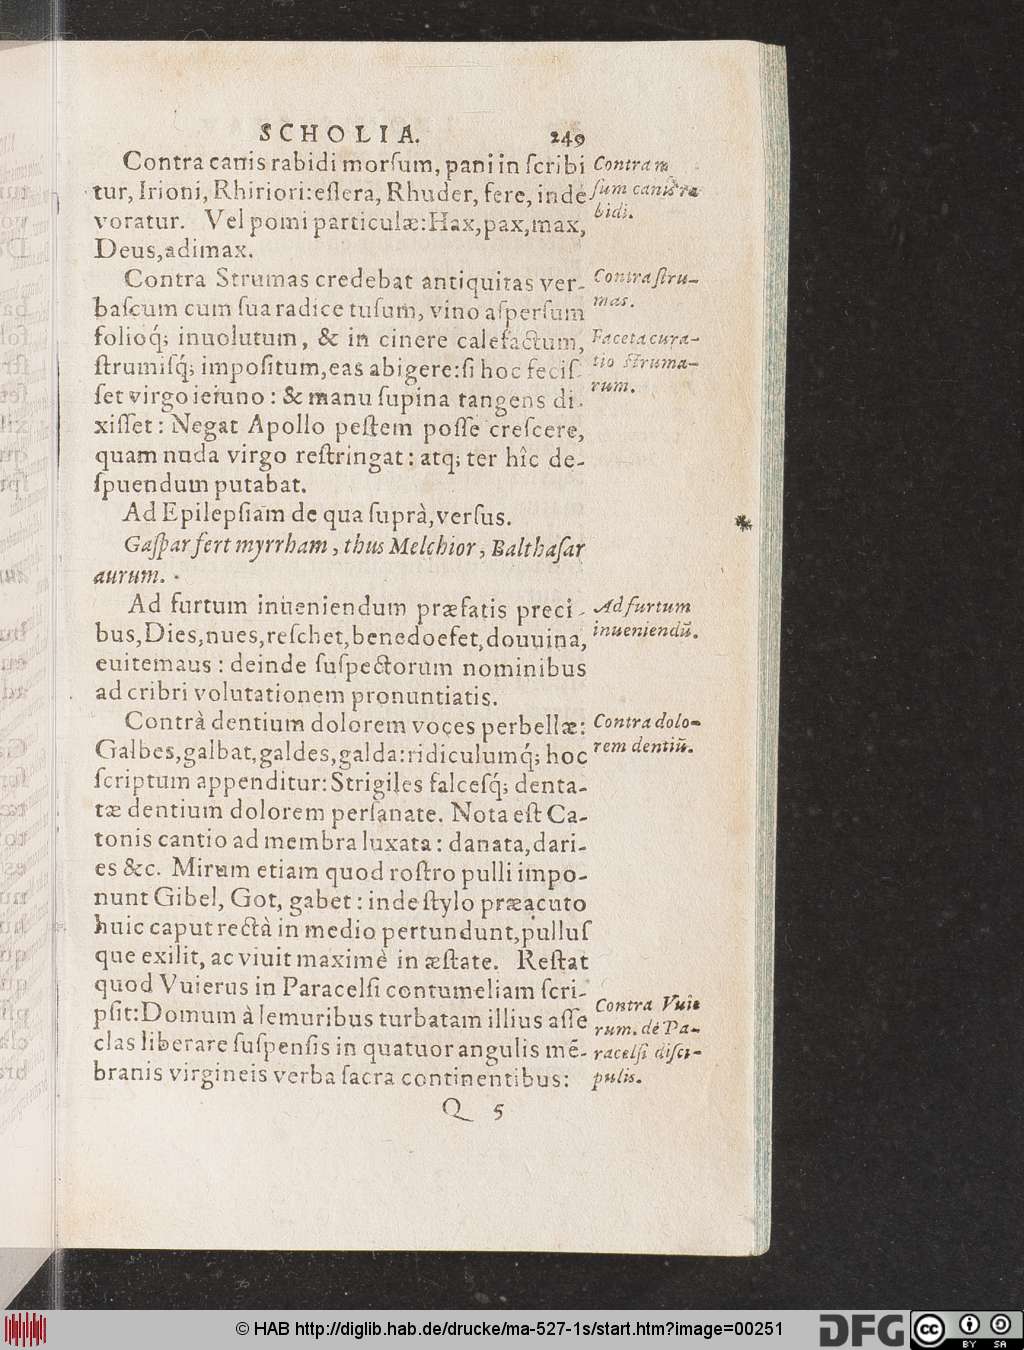 SCHOLIA. 249
Contra canis rabidi morſum, pani in ſcribi
tur, Irioni, Rhiriori: eſſera, Rhuder, fere, inde
voratur. Vel pomi particulæ: Hax, pax, max,
Deus, adimax.
Contra Strumas credebat antiquitas ver-
baſcum cum ſua radice tuſum, vino aſperſum
folioq́; inuolutum, & in cinere calefactum,
ſtrumiſq́; impoſitum, eas abigere: ſi hoc feciſ-
ſet virgo ieiuno: & manu ſupina tangens di-
xiſſet: Negat Apollo peſtem poſſe creſcere,
quam nuda virgo reſtringat: atq; ter hîc de-
ſpuendum putabat.
Ad Epilepſiam de qua ſuprà, verſus.
Gaſpar fert myrrham, thus Melchior, Balthaſar
aurum.
Ad furtum inueniendum præfatis preci-
bus, Dies, nues, reſchet, benedoefet, douuina,
euitemaus: deinde ſuſpectorum nominibus
ad cribri volutationem pronuntiatis.
Contrà dentium dolorem voces perbellæ:
Galbes, galbat, galdes, galda: ridiculumq́; hoc
ſcriptum appenditur: Strigiles falceſq́; denta-
tæ dentium dolorem perſanate. Nota eſt Ca-
tonis cantio ad membra luxata: danata, dari-
es &c. Mirum etiam quod roſtro pulli impo-
nunt Gibel, Got, gabet: inde ſtylo præacuto
huic caput rectà in medio pertundunt, pulluſ
que exilit, ac viuit maximè in æſtate. Reſtat
quod Vuierus in Paracelſi contumeliam ſcri-
pſit: Domum à lemuribus turbatam illius aſſe
clas liberare ſuſpenſis in quatuor angulis mē-
branis virgineis verba ſacra continentibus:
Q 5
Contra
ſum canis ra
bidi.
Contra ſtru-
mas.
Faceta cura-
tio ſtruma-
rum.
Ad furtum
inueniendū.
Contra dolo-
rem dentiū.
Contra Vuie
rum. de Pa-
racelſi diſci-
pulis.
© HAB http://diglib.hab.de/drucke/ma-527-1s/start.htm?image=00251
DFG
cc
BY SA